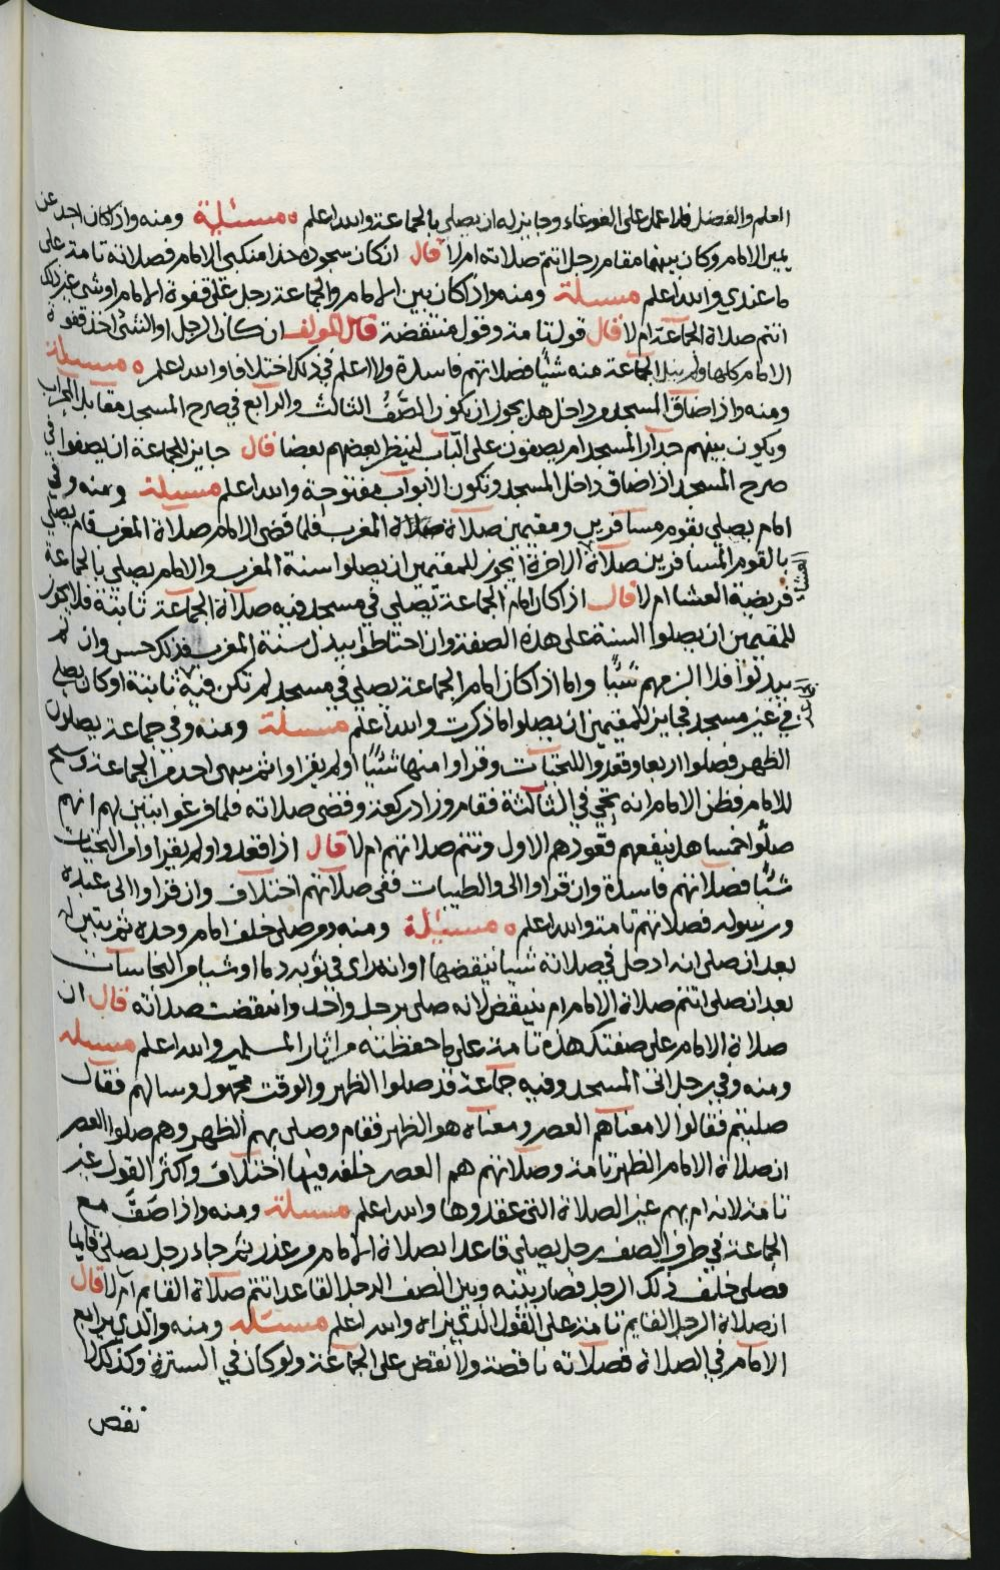 العلم والفضل فلا عمل على الغوغاء وجايز له ان يصلي بالجماعة والله اعلم ه مسئلة ومنه واذا كان احد عن
يمين الامام وكان بينهما مقام رجل اتتم صلاته ام لا قال ان كان سجوده حذا منكبي الامام فصلاته تامة على
ما عندي والله اعلم مسئلة ومنه واذا كان بين الامام والجماعة رجل على قفوة الامام او شي غير ذلك
اتتم صلاة الجماعة ام لا قال قول تامة وقول منتقضة قال المولف ان كان الرجل او الشي اخذ قفوة
الامام كلها ولم ينل الجماعة منه شيا فصلاتهم فاسدة ولا اعلم في ذلك اختلافا والله اعلم ه مسئلة
ومنه واذا ضاق المسجد من داخل هل يجوز ان يكون الصف الثالث والرابع في صرح المسجد مقابل المحراب
ويكون بينهم جدار المسجد ام يصفون على الباب لينظر بعضهم بعضا قال جايز للجماعة ان يصفوا في
صرح المسجد اذا ضاق داخل المسجد وتكون الابواب مفتوحة والله اعلم مسيلة ومنه وفي
امام يصلي بقوم مسافرين ومقيمين صلاة المغرب فلما قضى الامام صلاة المغرب قام يصلي
بالقوم المسافرين صلاة الاخرة ايجوز للمقيمين ان يصلوا سنة المغرب والامام يصلي بالجماعة
العشا
فريضة العشا ام لا قال اذا كان امام الجماعة يصلي في مسجد فيه صلاة الجماعة ثابتة فلا يجوز
للمقيمين ان يصلوا السنة على هذه الصفة وان احتاطوا ببدل سنة المغرب فذلك حسن وان لم
يبدلوا فلا الزمهم شيا واما اذا كان امام الجماعة يصلي في مسجد لم تكن فيه ثابتة او كان يصلي
جماعة
في غير مسجد فجايز للمقيمين ان يصلوا ما ذكرت والله اعلم مسئلة ومنه وفي جماعة يصلون
الظهر فصلوا اربعا وقعدوا للتحيات وقراوا منها شيا او لم يقراوا ثم سهى احد من الجماعة وسبح
للامام فظن الامام انه يحيي في الثالثة فقام وزاد ركعة وقضى صلاته فلما فرغوا تبين لهم انهم
صلوا خمسا هل ينفعهم قعودهم الاول وتتم صلاتهم ام لا قال اذا قعدوا ولم يقراوا من التحيات
شيا فصلاتهم فاسدة وان قراوا الى والطيبات ففي صلاتهم اختلاف وان قراوا الى عبده
ورسوله فصلاتهم تامة والله اعلم ه مسئلة ومنه ومن صلى خلف امام وحده ثم تبين له
بعد ان صلى انه ادخل في صلاته شيا ينقضها او انه راى في ثوبه دما او شيا من النجاسات
بعد ان صلى اتتم صلاة الامام ام ينتقض لانه صلى برجل واحد وانتقضت صلاته قال ان
صلاة الامام على صفتك هذه تامة على ما حفظته من اثار المسلمين والله اعلم مسئلة
ومنه وفي رجل اتى المسجد وفيه جماعة قد صلوا الظهر والوقت مجهول وسالهم فقال
صليتم فقالوا لا معناهم العصر ومعناه هو الظهر فقام وصلى بهم الظهر وهم صلوا العصر
ان صلاة الامام الظهر تامة وصلاتهم هم العصر خلفه فيها اختلاف واكثر القول غير
تامة لانه ام بهم غير الصلاة التي عقدوها والله اعلم مسئلة ومنه واذا صَفَّ مع
الجماعة في طرف الصف رجل يصلي قاعدا بصلاة الامام من عذر ثم جاء رجل يصلي قايما
فصلى خلف ذلك الرجل فصار بينه وبين الصف الرجل القاعد اتتم صلاة القايم ام لا قال
ان صلاة الرجل القايم تامة على القول الذي نراه والله اعلم مسئلة ومنه والذي يرابع
الامام في الصلاة فصلاته ناقصة ولا نقض على الجماعة ولو كان في السترة وكذلك لا
نقض